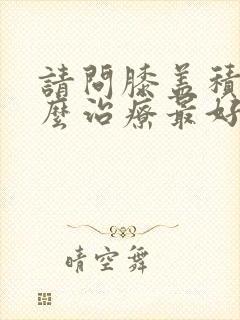 請問膝盖積
麼治療最好
晴空舞